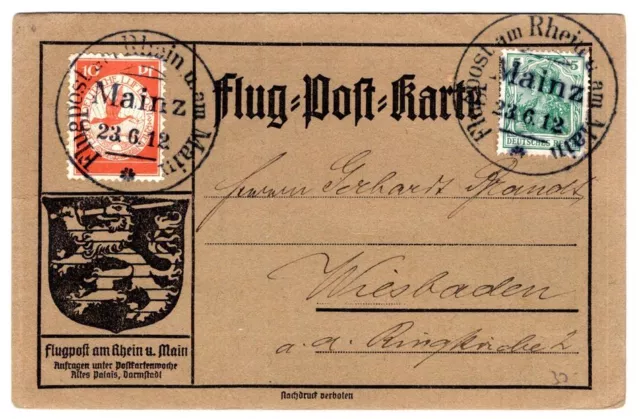 Flugpost am Rhein u. am Main
10 Pf
Mainz
23.6.12
Flug=Post=Karte
Flugpost am Rhein u. am Main
5
Mainz
23.6.12
DEUTSCHES
Herrn Gerhardt Brandt,
Wiesbaden
a. d. Ringkirche 2
Flugpost am Rhein u. Main
Anfragen unter Postkartenwoche
Altes Palais, Darmstadt
Nachdruck verboten